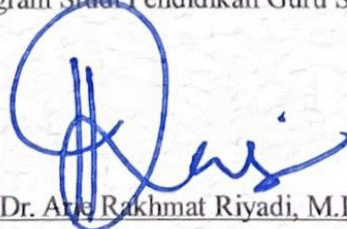 gram Studi Pendidikan Guru S
Dr. Arie Rakhmat Riyadi, M.P